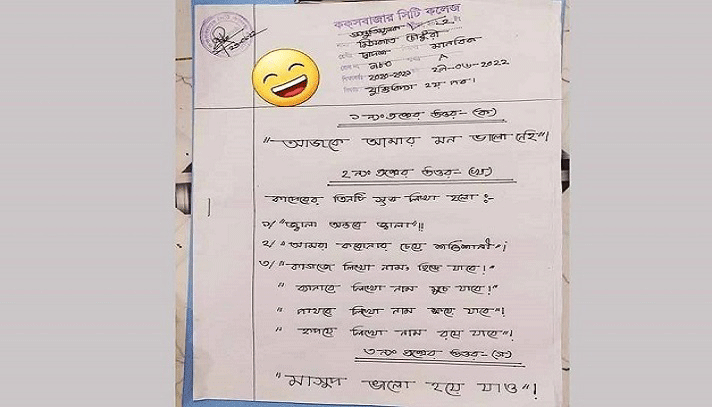 কক্সবাজার সিটি কলেজ
দ্বাদশ মানবিক
৯৮৩ A
২০২০-২০২১ ২৭-০৬-২০২২
যুক্তিবিদ্যা ২য় পত্র।
১ নং প্রশ্নের উত্তর- (ক)
"আজকে আমার মন ভালো নেই"।
২ নং প্রশ্নের উত্তর- (খ)
কাদেরের তিনটি সূত্র লিখা হলো :-
১/ "জ্বালা অন্তরে জ্বালা"॥
২/ "আমরা করোনার চেয়ে শক্তিশালী"।
৩/ "কাগজে লিখো নাম, ছিঁড়ে যাবে।"
" ব্যানারে লিখো নাম মুছে যাবে।"
" পাথরে লিখো নাম ক্ষয়ে যাবে"।
" হৃদয়ে লিখো নাম রয়ে যাবে"।
৩ নং প্রশ্নের উত্তর- (গ)
"মাসুদ ভালো হয়ে যাও"।